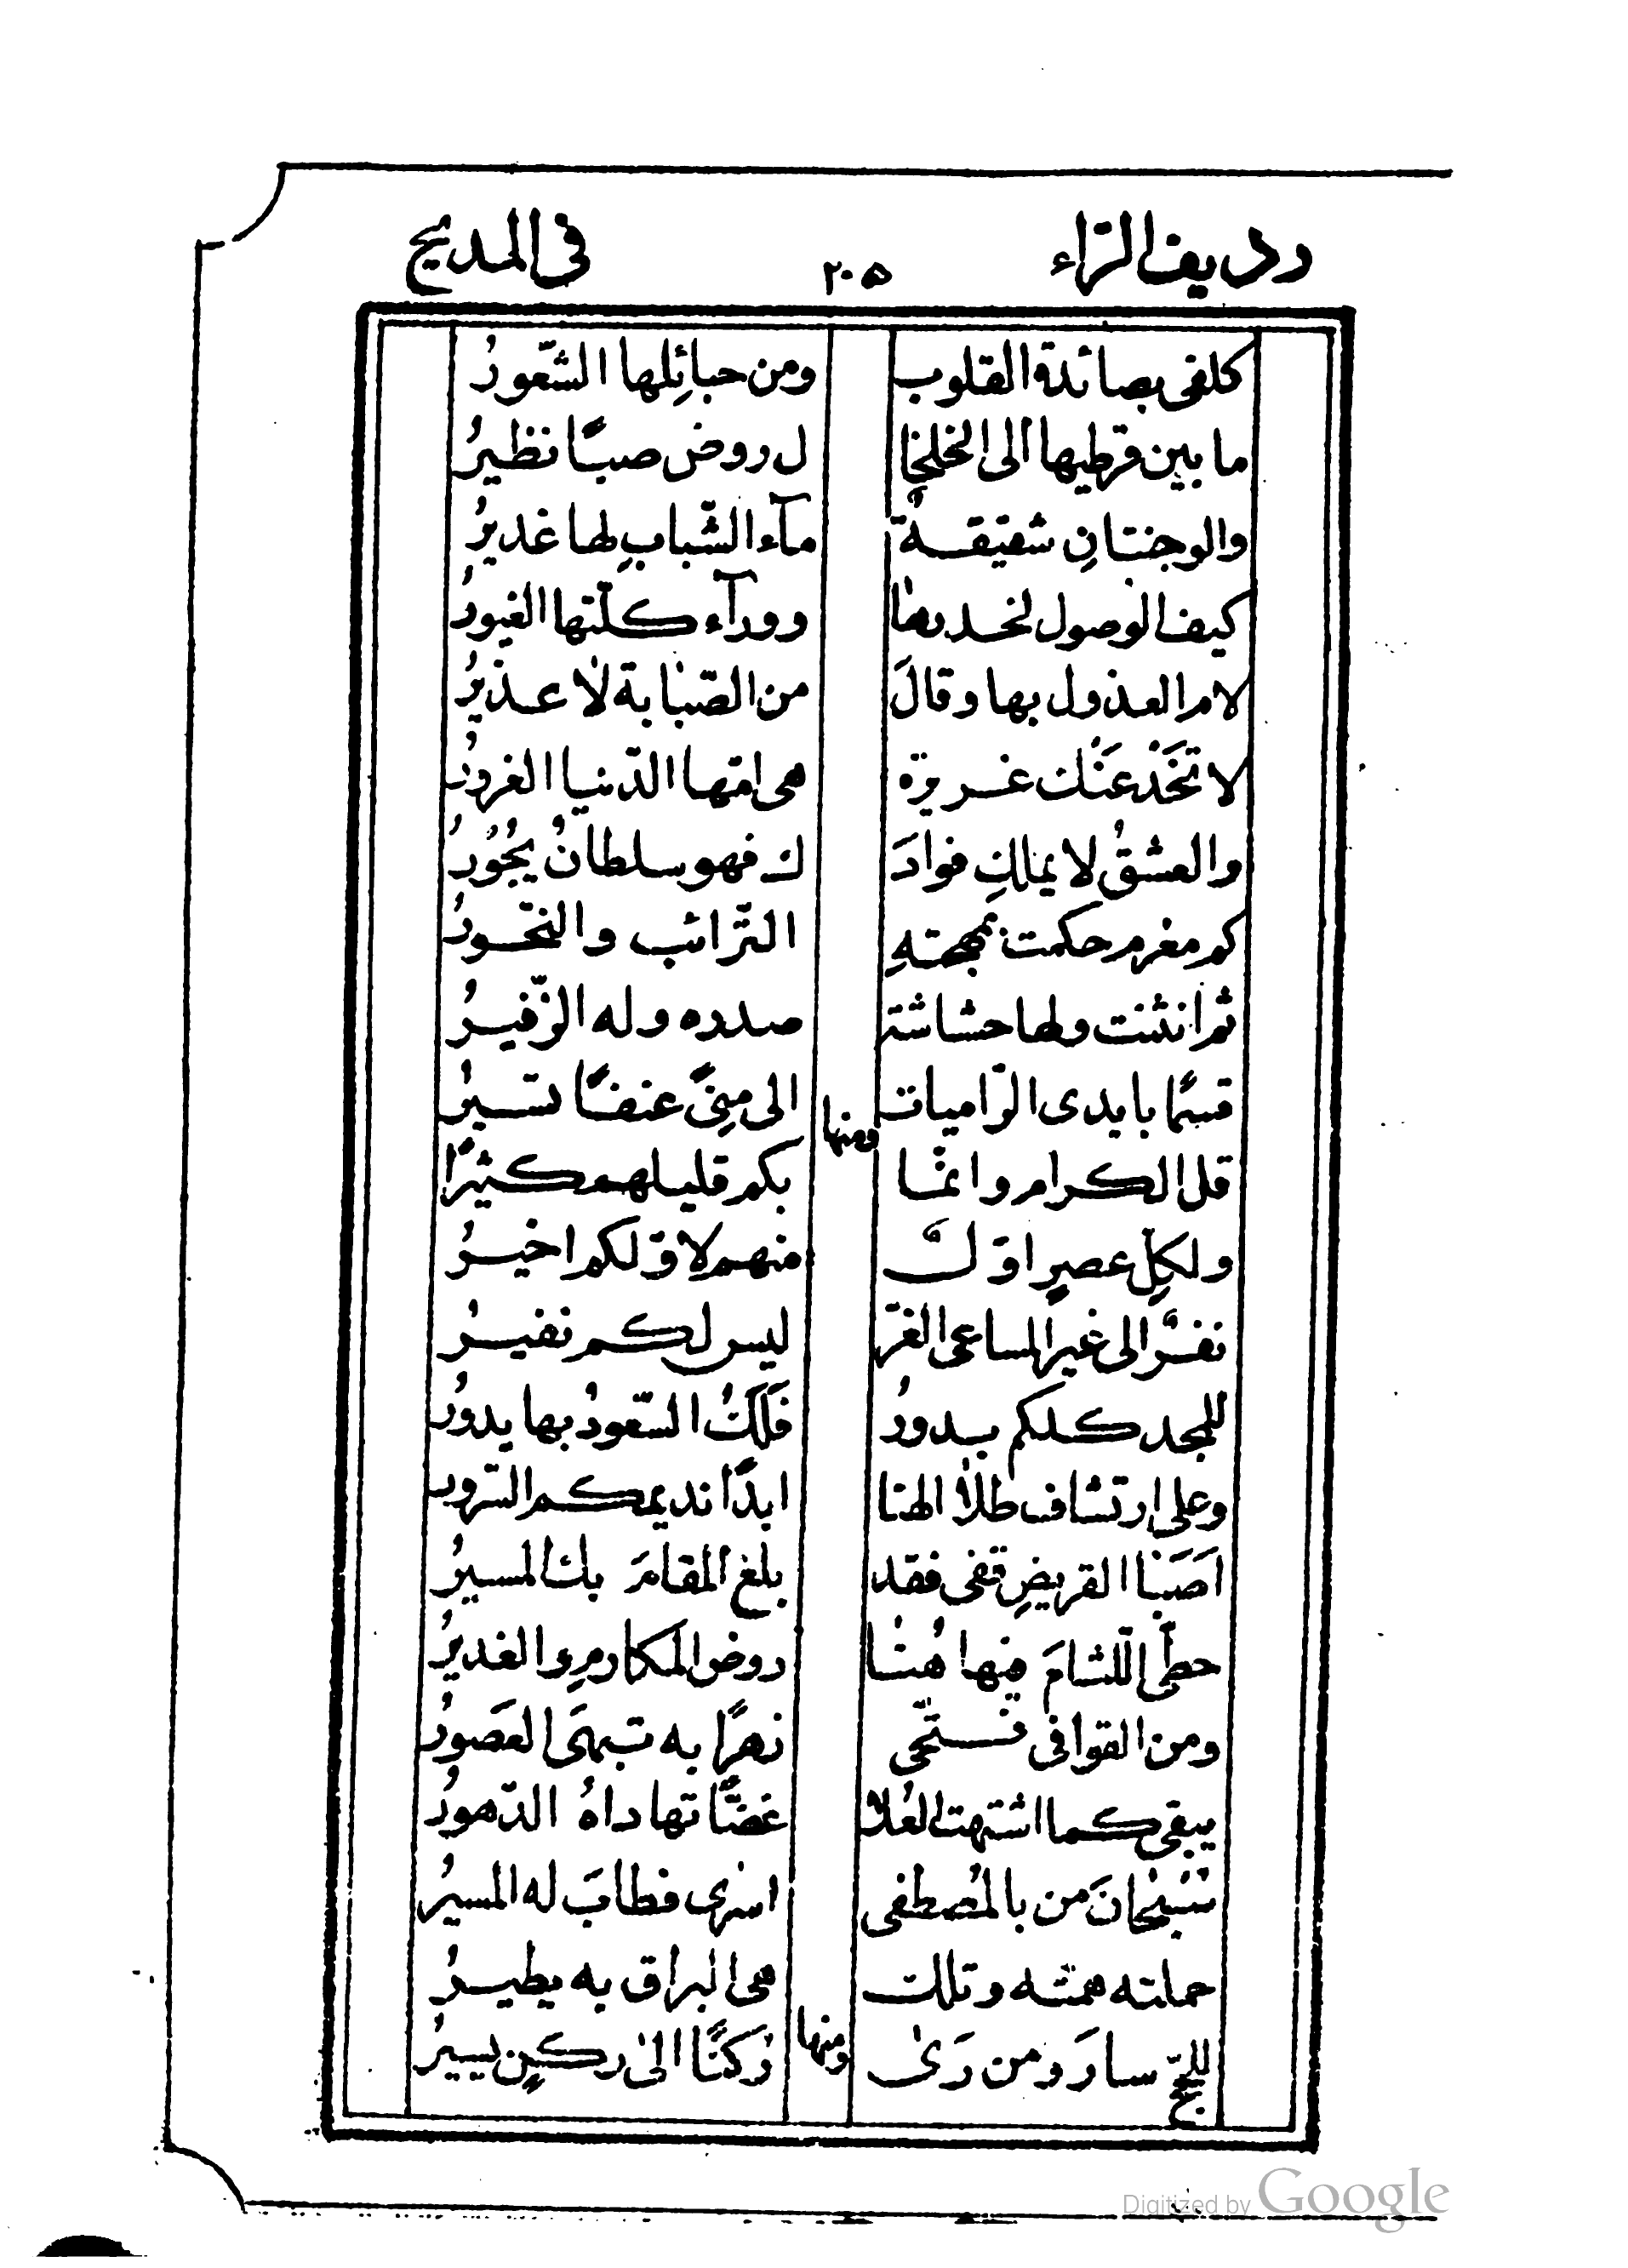 ردیف الرّاء ٢٠٥ فی المدیح
کلفی بصائدة القلوب ومن حبائِلها الشّعورُ
ما بین قرطیها الی الخلخا ل روض صبًا نظیرُ
والوجنتانِ شقیقةٌ مآء الشّبابِ لها غدیرُ
کیف الوصول لخدرها وورآء کلّتها الغیورُ
لام العذول بها وقالَ من الصّبابة لا عذیرُ
لا تخدعنك غریرة هی امّها الدّنیا الغرورُ
والعشقُ لا یملكِ فوادَ ك فهو سلطانٌ یجُورُ
کم مغرم حکمت بمهجتهِ التّرائب والنّحورُ
ثم انثنت ولها حشاشة صدره وله الزّفیرُ
قسمًا بایدی الرّامیات الی منیً عنفًا تسیرُ
ومنها
قل الکرام وانمّا بکم قلیلهم کثیرًا
ولکلِّ عصرٍ اوّلٌ منهم لاوّلکم اخیرُ
نفرٌ الی غیر المساعی الغرّ لیس لکم نفیرُ
للمجد کلکم بدورُ فَلَكُ السّعودُ بها یدورُ
وعلی ارتشاف طلا الهنا ابدًا ندیمکم السّرور
اَصَبَا القریضِ قفی فقد بلغ المقامَ بك المسیرُ
حطّی اللّثامَ فیها هُنا روض المکارمِ والغدیرُ
ومن القوافی فتّحی زهرًا به تبهیَ العَصورُ
یبقی کما اشتهت العُلا غضًّا تهاداهُ الدّهورُ
سُبحانَ من بالمُصطفی اسری فطابَ له المسیرُ
حملته همّته وتلك هی البراق به یطیرُ
ومنها
للحجّ سارَ ومن رَیٰ رُکنًا الیٰ رکنٍ یسیرُ
Digitized by Google